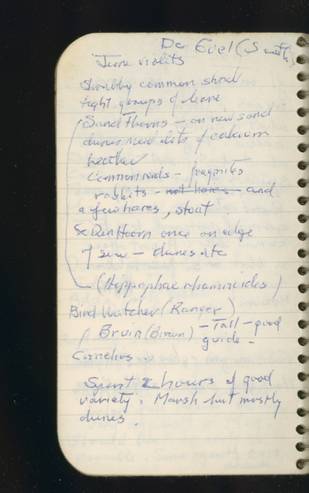 De Geul (South)
June violets
Shrubby common shod
tight groups of leave
Sand Thorns - on new sand
dunes need lots of calcium
heather
Common reeds - fragmites
rabbits - not hares - and
a few hares, stoat
Sea Duin Hoorn once on edge
of sea - dunes etc
(Hippophae rhamnoides)
Bird Watcher (Ranger)
Bruin (Brown) - Tall - good
guide -
Cornelius
Spent 2 hours of good
variety. Marsh but mostly
dunes.